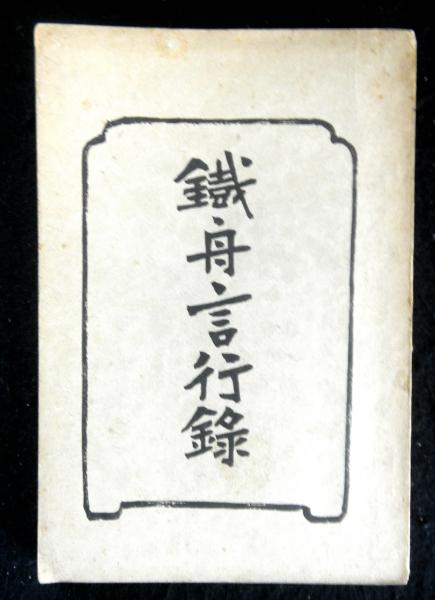 鐵舟言行錄